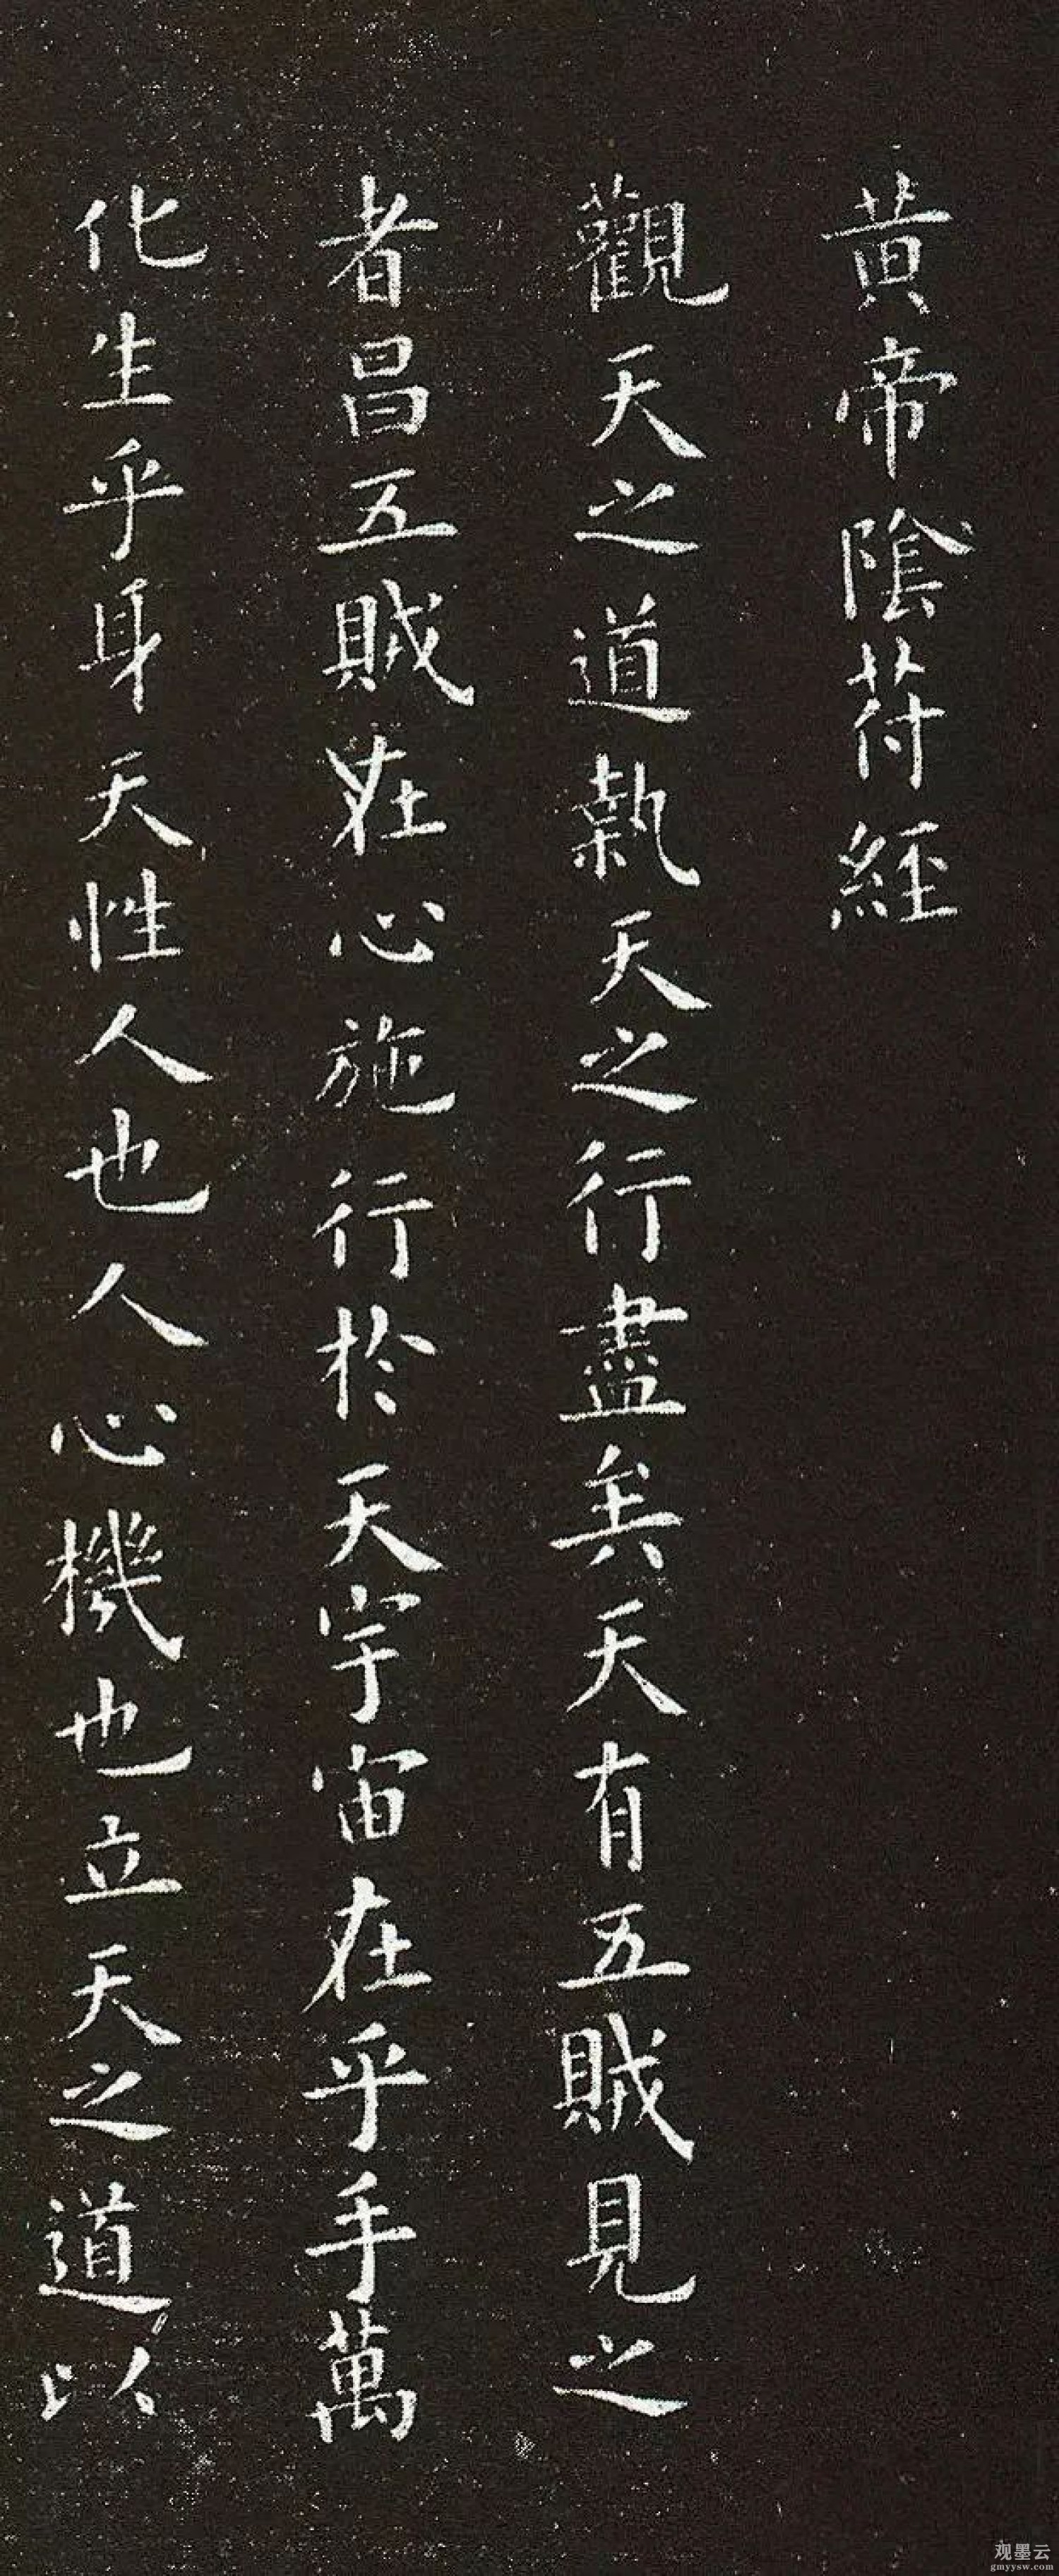 黃帝陰苻經
觀天之道執天之行盡矣天有五賊見之
者昌五賊在心施行於天宇宙在乎手萬
化生乎身天性人也人心機也立天之道以
观墨云
gmyysw.com